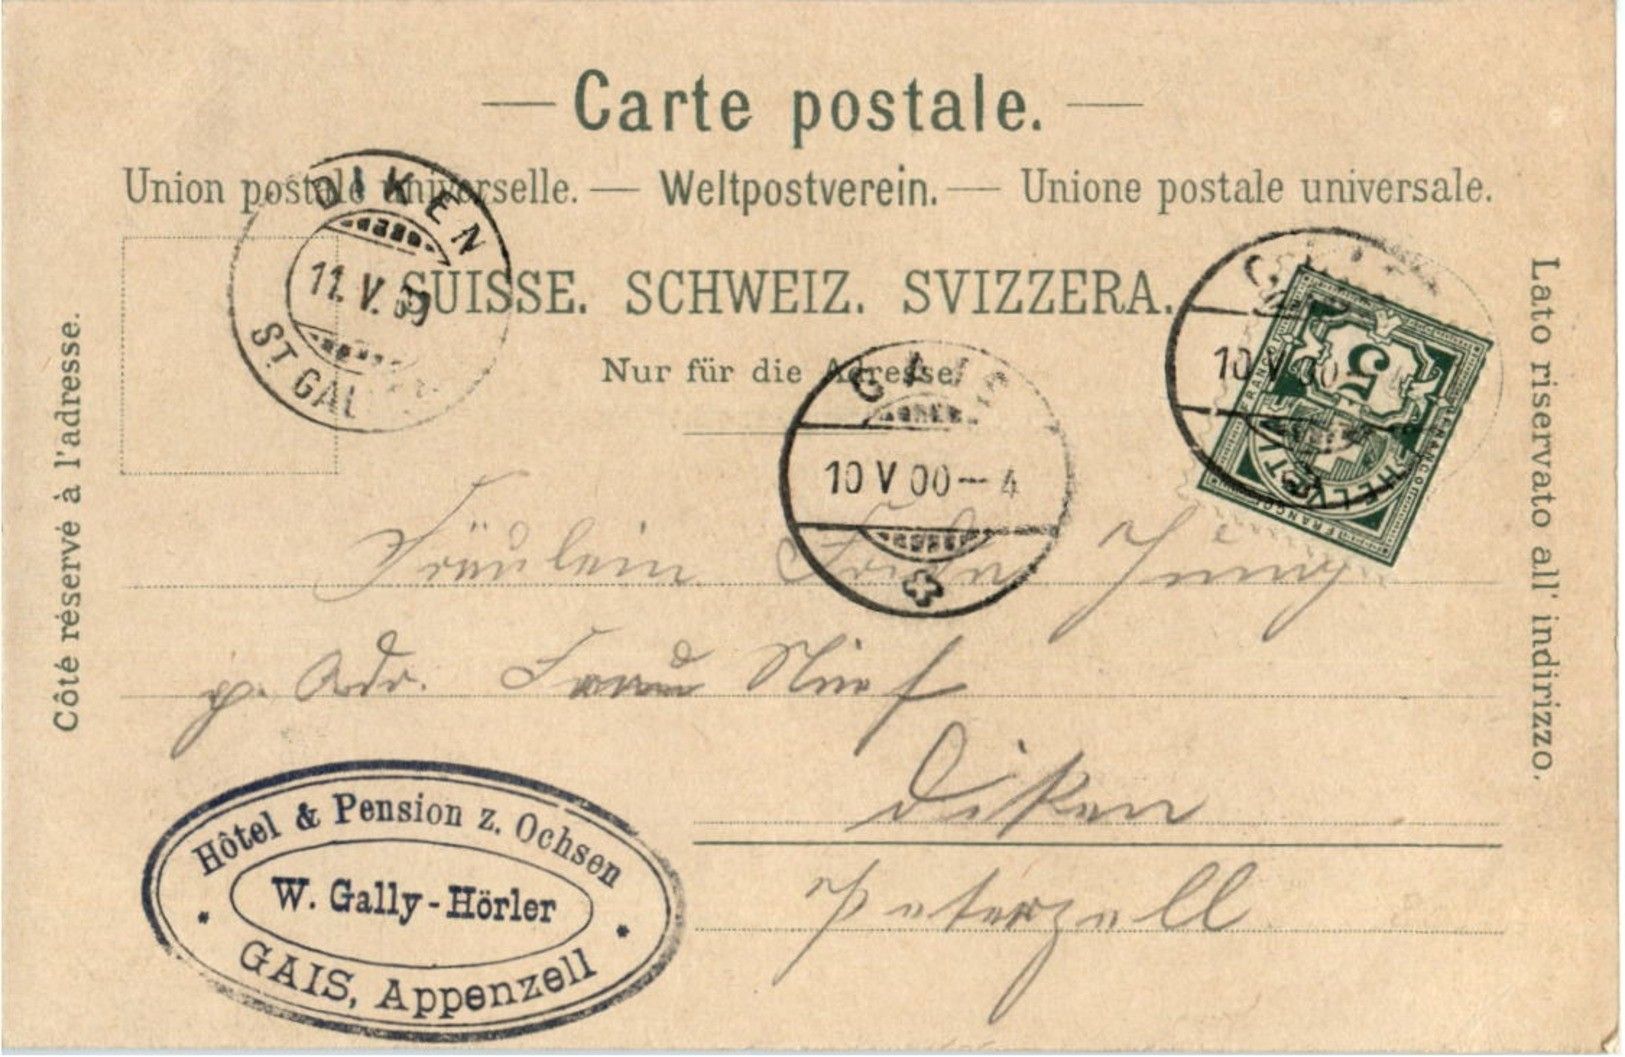 Carte postale.
Union postale universelle. — Weltpostverein. — Unione postale universale.
SUISSE. SCHWEIZ. SVIZZERA.
Nur für die Adresse.
Côté réservé à l'adresse.
Lato riservato all' indirizzo.
DIKEN
11. V. 00
ST. GAL
GAIS
10 V 00 - 4
10 V 00
5
FRANCO
FRANCO
FRANCO
FRANCO
HELVETIA
Fräulein Frida Jung
p. Adr. Frau Näf
Diken
Peterzell
Hôtel & Pension z. Ochsen
W. Gally-Hörler
GAIS, Appenzell